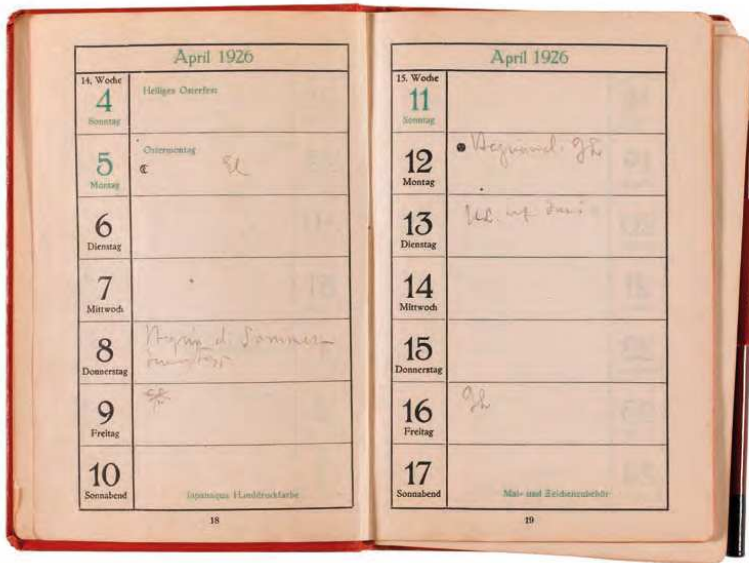 April 1926
14. Woche
4
Sonntag
Heiliges Osterfest
5
Montag
Ostermontag
El
6
Dienstag
7
Mittwoch
8
Donnerstag
d. Sommer-
9
Freitag
10
Sonnabend
Japanaqua Handdruckfarbe
18
April 1926
15. Woche
11
Sonntag
12
Montag
13
Dienstag
14
Mittwoch
15
Donnerstag
16
Freitag
17
Sonnabend
Mal- und Zeichenzubehör
19